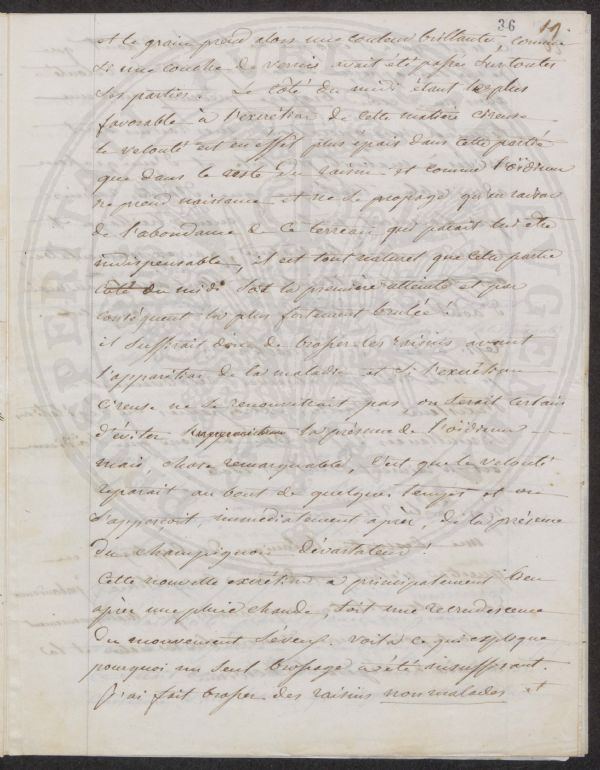 36 19.
et le grain prend alors une couleur brillante, comme
si une couche de vernis avait été passée sur toutes
ses parties. Le côté du midi étant le plus
favorable à l'excrétion de cette matière cireuse
le velouté est en effet plus épais dans cette partie
que dans le reste du raisin et comme l'oïdium
ne prend naissance et ne se propage qu'en raison
de l'abondance de ce terreau qui parait lui être
indispensable, il est tout naturel que cette partie
côté du midi soit la première atteinte et par
conséquent la plus fortement brulée!
il suffirait donc de brosser les raisins avant
l'apparition de la maladie et si l'excrétion
cireuse ne se renouvellait pas, on serait certain
d'éviter la présence de l'oïdium
mais, chose remarquable, c'est que le velouté
reparait au bout de quelque temps et on
s'apperçoit, immédiatement après, de la présence
du champignon dévastateur!
Cette nouvelle excrétion a principalement lieu
après une pluie chaude, soit une recrudescence
du mouvement séveux. voilà ce qui explique
pourquoi un seul brossage a été insuffisant.
J'ai fait brosser des raisins non malades et